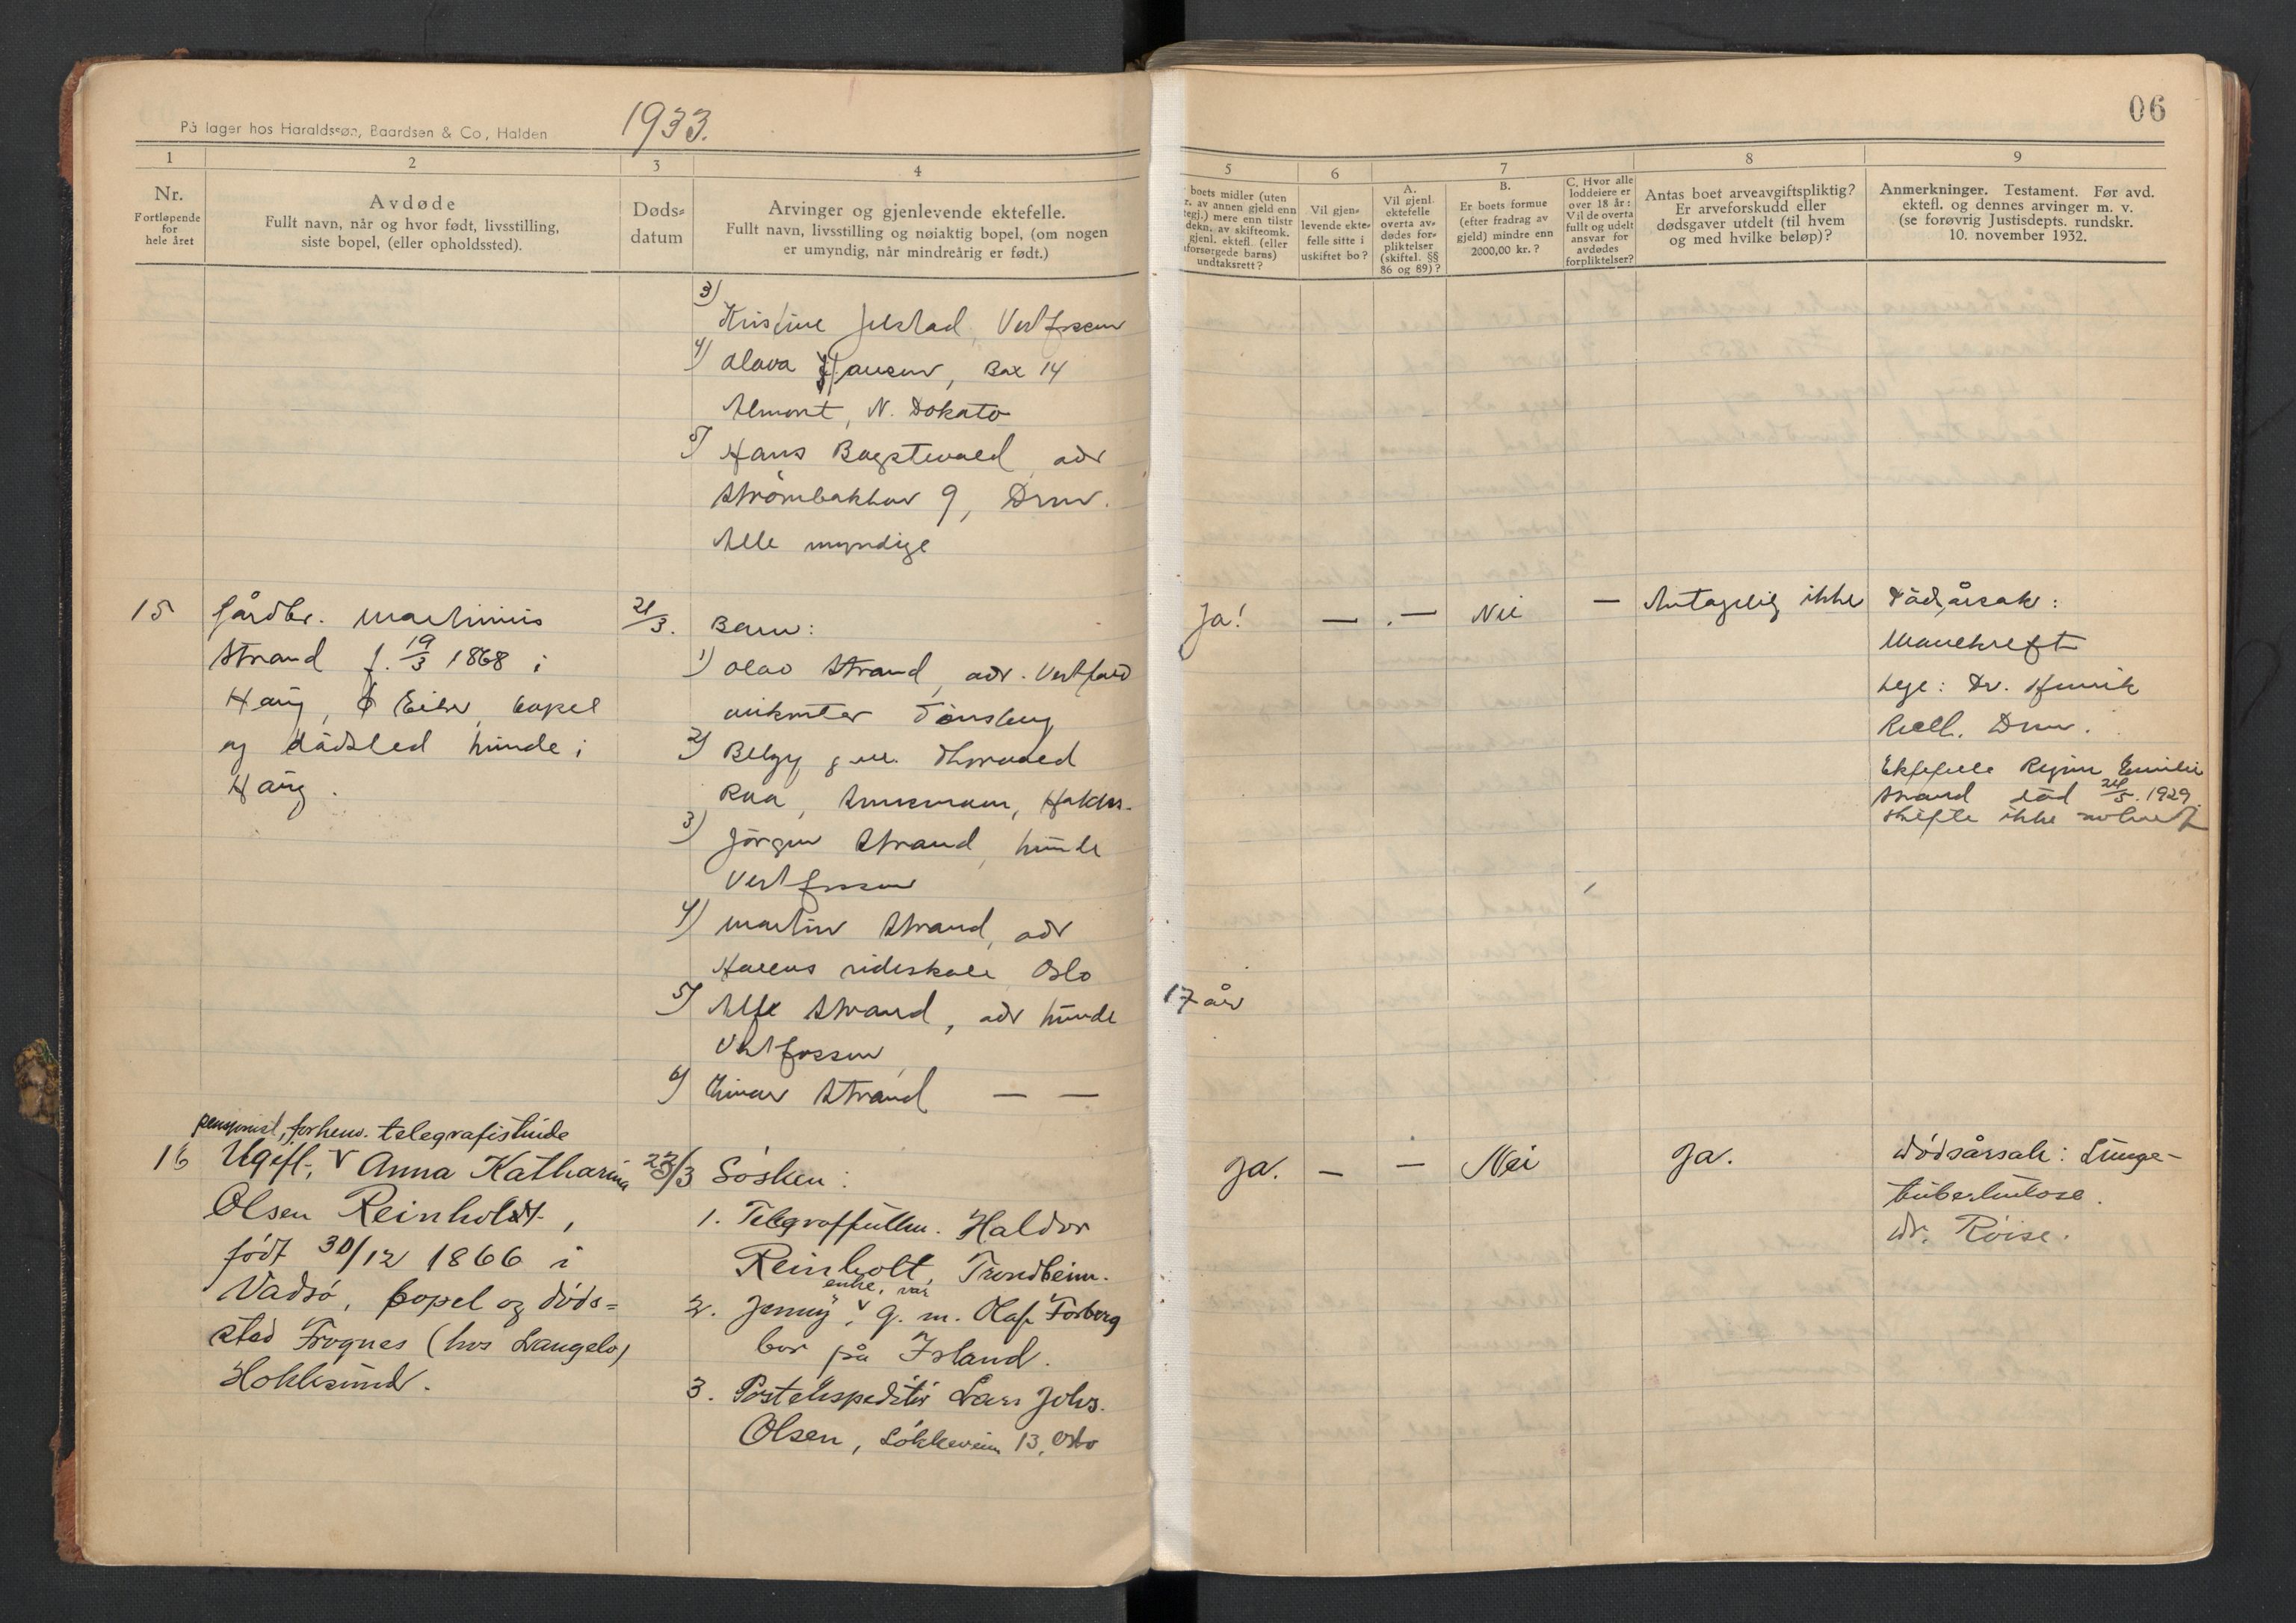 På lager hos Haraldssøn, Baardsen & Co., Halden
1933.
06
1
2
3
4
5
6
7
8
9
Nr.
Fortløpende
for
hele året
Avdøde
Fullt navn, når og hvor født, livsstilling,
siste bopel, (eller opholdssted).
Døds-
datum
Arvinger og gjenlevende ektefelle.
Fullt navn, livsstilling og nøiaktig bopel, (om nogen
er umyndig, når mindreårig er født.)
boets midler (uten
r. av annen gjeld enn
egj.) mere enn tilstr
dekn. av skifteomk.
gjenl. ektefl. (eller
forsørgede barns)
undtaksrett?
Vil gjen-
levende ekte-
felle sitte i
uskiftet bo?
A.
Vil gjenl.
ektefelle
overta av-
dødes for-
pliktelser
(skiftel. §§
86 og 89)?
B.
Er boets formue
(efter fradrag av
gjeld) mindre enn
2000,00 kr.?
C. Hvor alle
loddeiere er
over 18 år:
Vil de overta
fullt og udelt
ansvar for
avdødes
forpliktelser?
Antas boet arveavgiftspliktig?
Er arveforskudd eller
dødsgaver utdelt (til hvem
og med hvilke beløp)?
Anmerkninger. Testament. Før avd.
ektefl. og dennes arvinger m. v.
(se forøvrig Justisdepts. rundskr.
10. november 1932.
3) Kristine Jelstad, Vestfossen
4) Olava Hansen, Box 14
Almont, N. Dokato
5) Hans adr
Strømbakken 9, Drm.
Alle myndige
15
Gårdbr. Martinius
Strand f. 19/3 1868 i
Haug, Ø Eiker, bopel
og dødsted Hunde i
Haug.
21/3.
Barn:
1) Olav Strand, adr. Vestfold
Tønsberg
2) Borgny g.m. Thorvald
Raa,
3) Jørgen Strand, Hunde
Vestfossen
4) Martin Strand, adr
rideskole Oslo
5) Alfe Strand, adr Hunde
Vestfossen
17 år
6) Einar Strand — —
Ja!
—
. —
Nei
—
Antagelig ikke
Dødsårsak:
Mavekreft
Lege: Dr. Henrik
Drm.
Ektefelle Regine Emilie
Strand død 24/5. 1929.
Skifte ikke
pensjonist, forhenv. telegrafistinde
16
Ugift, v Anna Katharina
Olsen Reinholdt,
født 30/12 1866 i
Vadsø, bopel og døds=
sted Frognes (hos Langelo)
Hokksund.
23/3
Søsken:
1. Telegraffullm. Haldor
Reinholt, Trondheim.
enke, var
2. Jenny, v g. m. Olaf Forberg
bor på Island.
3. Postekspeditør Lars Johs.
Olsen, Løkkeveien 13, Oslo
Ja.
—
—
Nei
Ja.
Dødsårsak: Lunge-
tuberkulose.
dr. Röise.